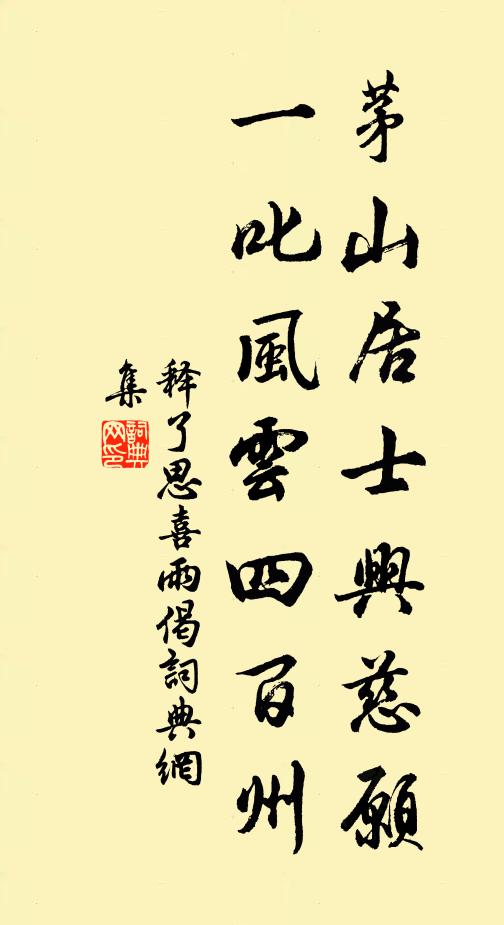 茅山居士興慈願
一叱風雲四百州
释了思喜雨偈詞典網
集
詞典
网印